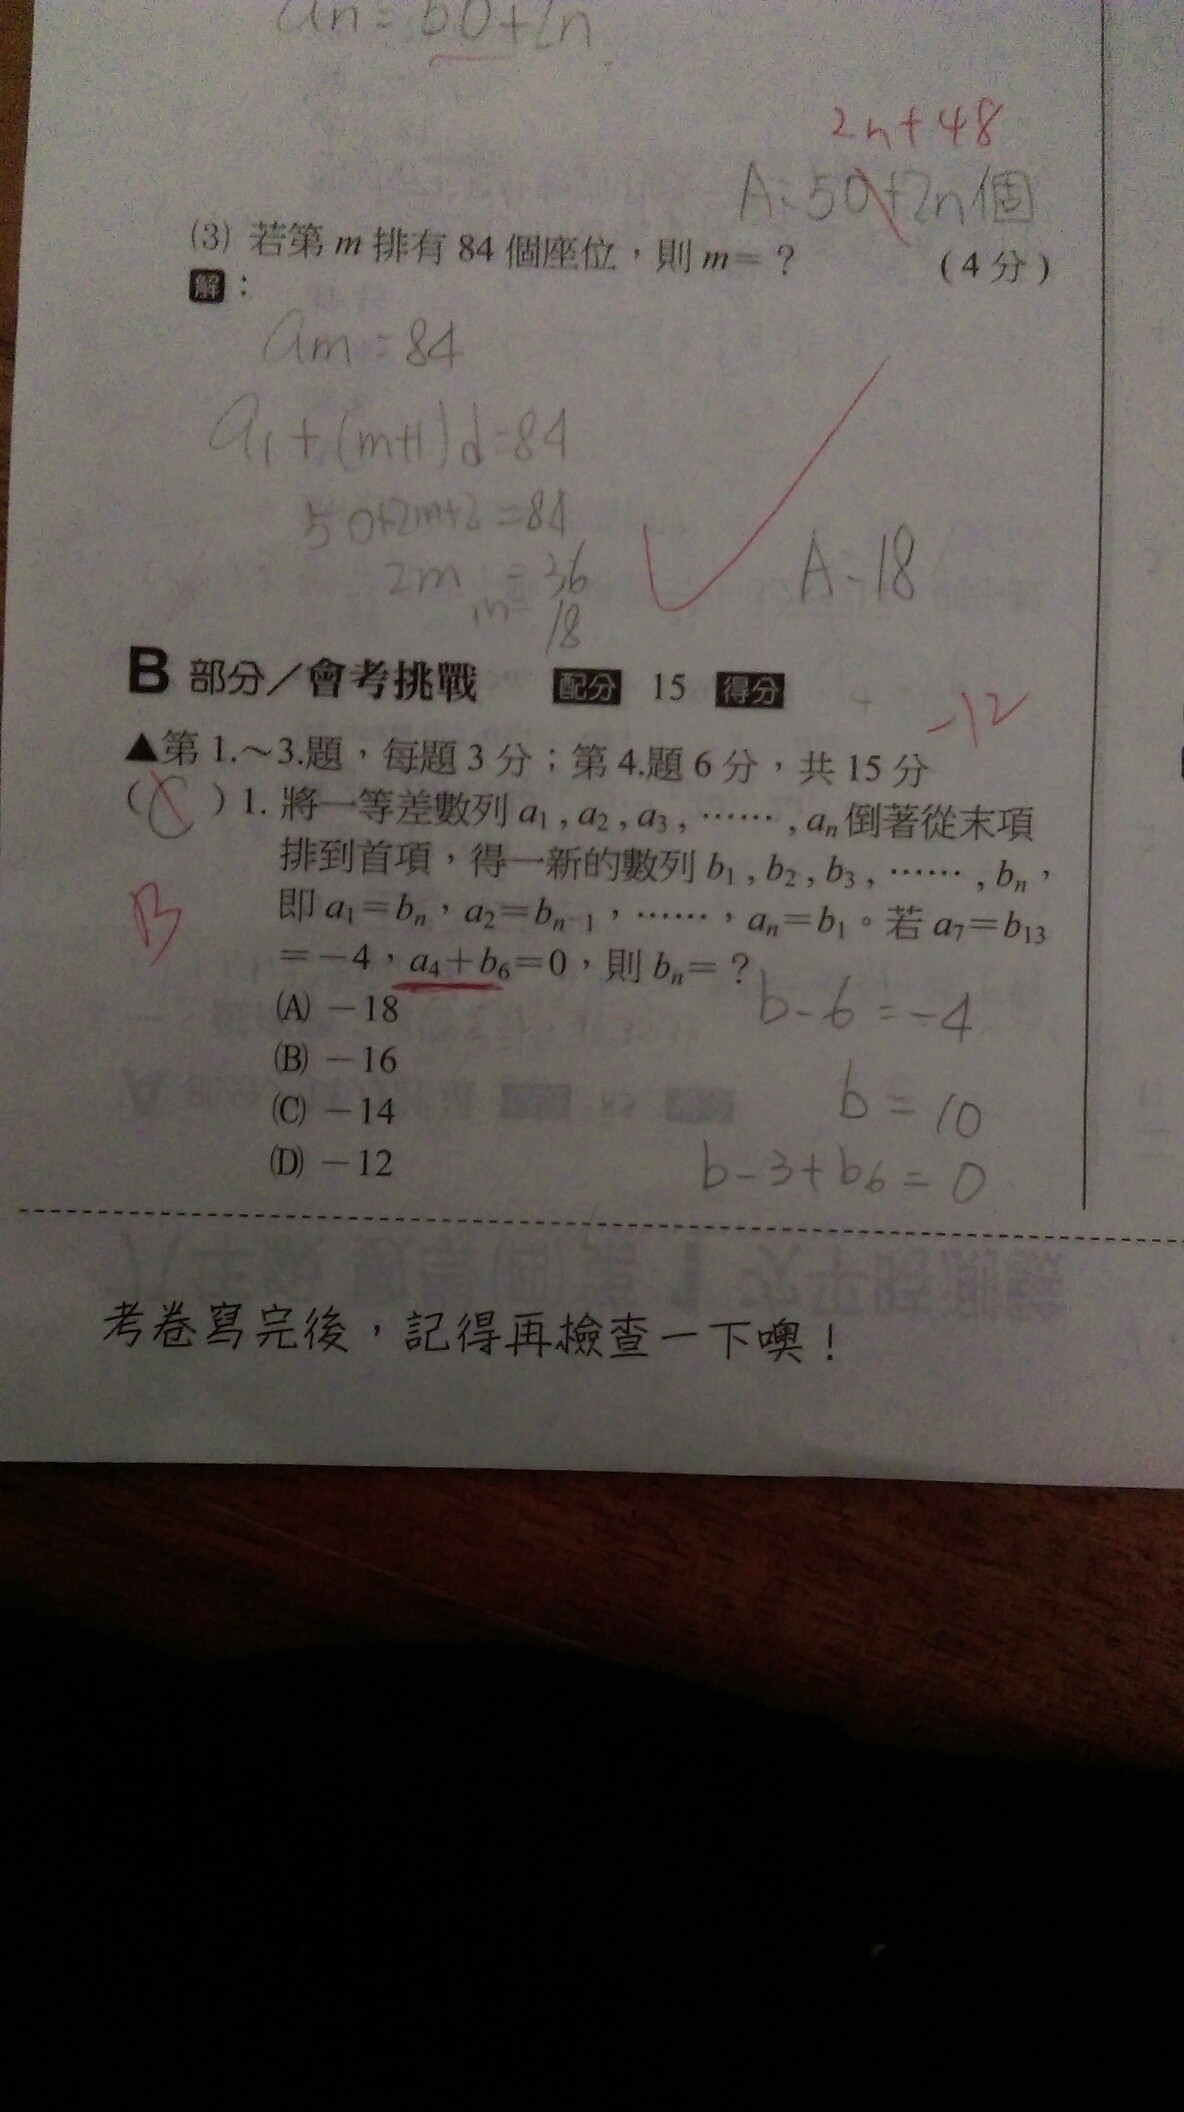 an = 50+2n
2n+48
A: 50+2n個
(3) 若第 m 排有 84 個座位，則 m＝？ (4 分)
解：
am = 84
a1+(m+1)d=84
50+2m+2=84
2m = 36
m= 18
A=18
B 部分／會考挑戰 配分 15 得分
-12
▲第 1.～3.題，每題 3 分；第 4.題 6 分，共 15 分
( C ) 1. 將一等差數列 a1 , a2 , a3 , …… , an 倒著從末項
排到首項，得一新的數列 b1 , b2 , b3 , …… , bn，
B
即 a1＝bn，a2＝bn−1，……，an＝b1。若 a7＝b13
＝−4，a4＋b6＝0，則 bn＝？
(A) −18
(B) −16
(C) −14
(D) −12
b-6=-4
b=10
b-3+b6=0
考卷寫完後，記得再檢查一下噢！